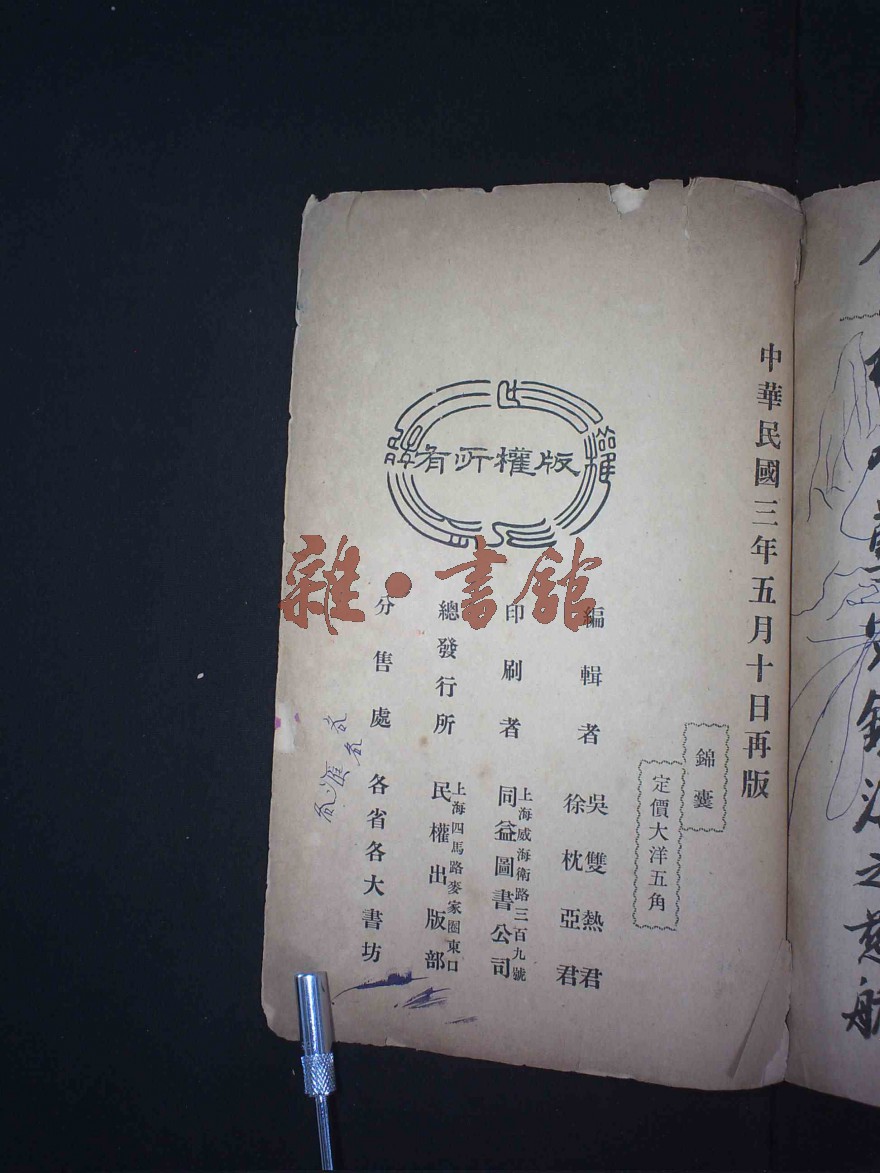 中華民國三年五月十日再版
錦囊
定價大洋五角
版權所有
編輯者
吳雙熱君
徐枕亞君
印刷者
上海威海衛路三百九號
同益圖書公司
總發行所
上海四馬路麥家圈東口
民權出版部
分售處
各省各大書坊
雜·書館